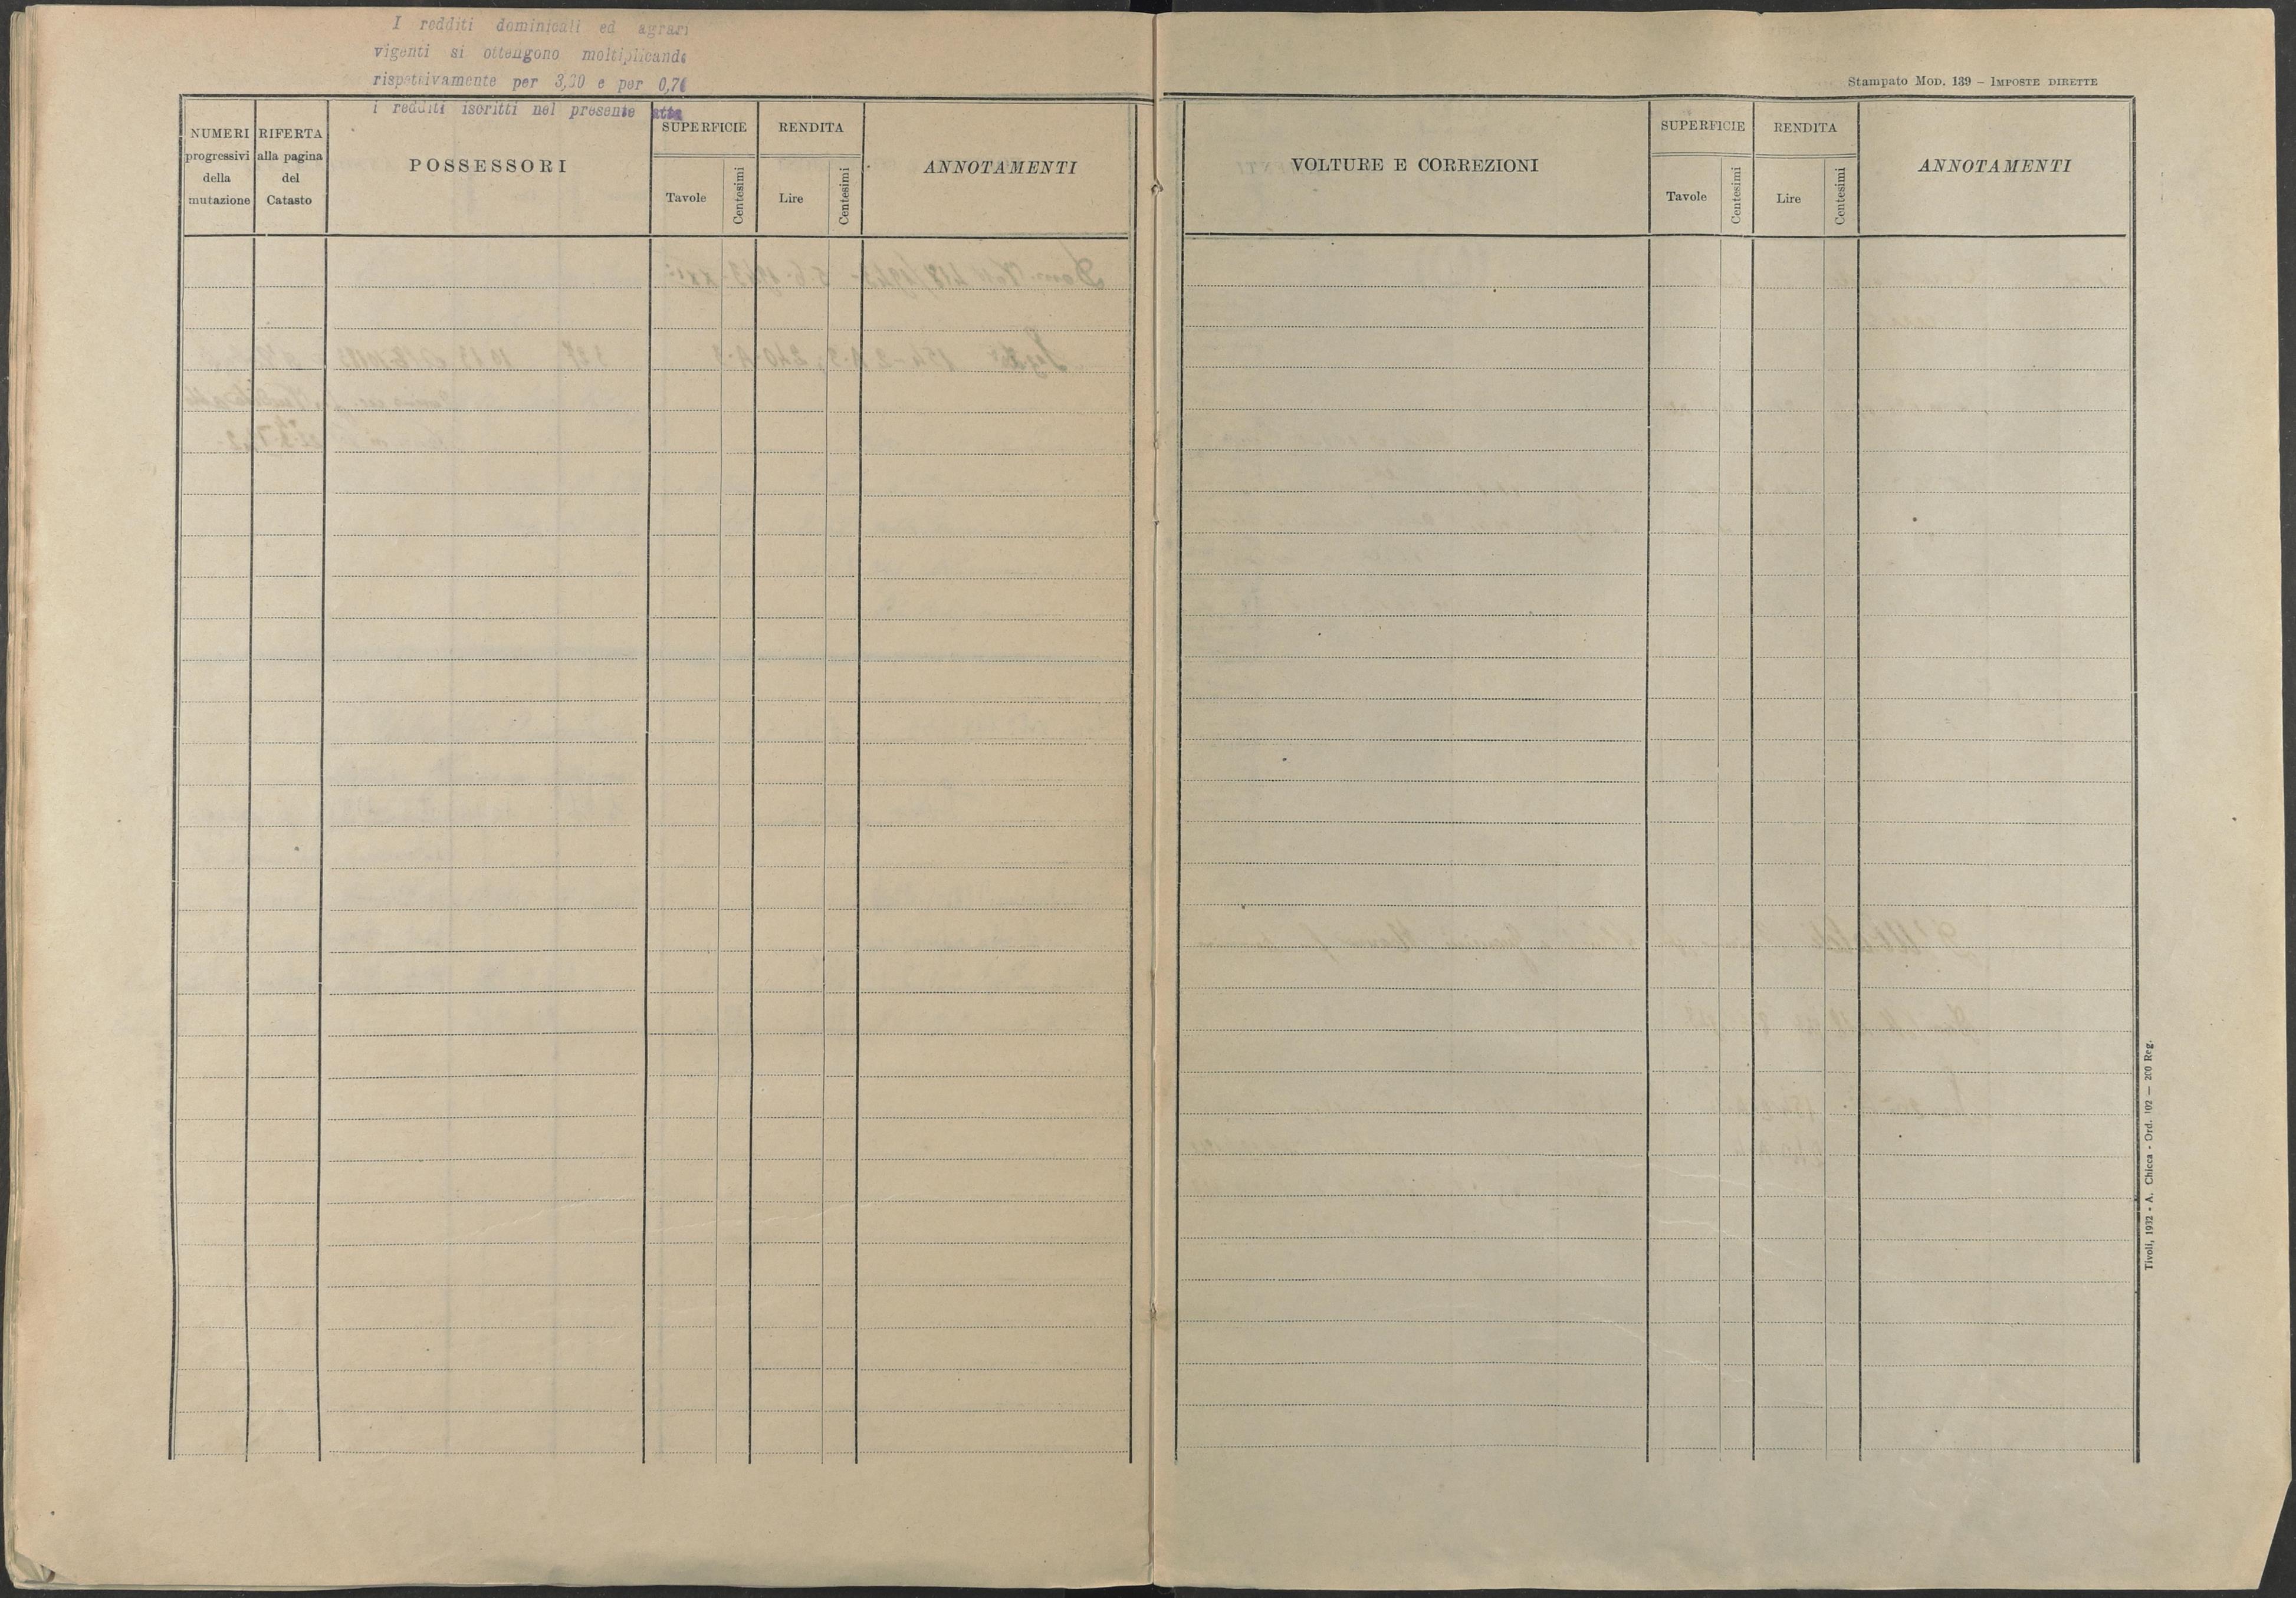 I redditi dominicali ed agrari
vigenti si ottengono moltiplicando
rispettivamente per 3,20 e per 0,70
i redditi iscritti nel presente atto
NUMERI
progressivi
della
mutazione
RIFERTA
alla pagina
del
Catasto
POSSESSORI
SUPERFICIE
Tavole
Centesimi
RENDITA
Lire
Centesimi
ANNOTAMENTI
Stampato MOD. 139 – IMPOSTE DIRETTE
VOLTURE E CORREZIONI
SUPERFICIE
Tavole
Centesimi
RENDITA
Lire
Centesimi
ANNOTAMENTI
Tivoli, 1932 - A. Chicca - Ord. 102 — 200 Reg.